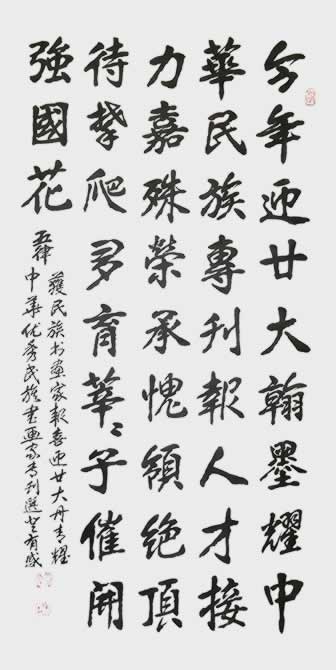 今年迎廿大翰墨耀中
華民族專刊報人才接
力嘉殊榮承愧領絶頂
待攀爬多育莘〻子催開
強國花
五律
獲民族书画家報喜迎廿大丹青耀
中華优秀民族書画家专刊選登有感